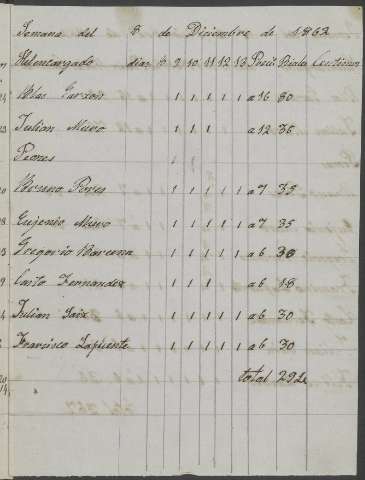 Semana del 8 de Diciembre de 1862
El encargado dias 8 9 10 11 12 13 Precio Reales Centimos
Blas Garzon 1 1 1 1 1 a 16 80
Julian Muro 1 1 1 a 12 36
Peones
Pores 1 1 1 1 1 a 7 35
Eugenio Muro 1 1 1 1 1 a 7 35
Gregorio Barcena 1 1 1 1 1 a 6 30
Casto Fernandez 1 1 1 a 6 18
Julian Saiz 1 1 1 1 1 a 6 30
Francisco Lapuente 1 1 1 1 1 a 6 30
total 294